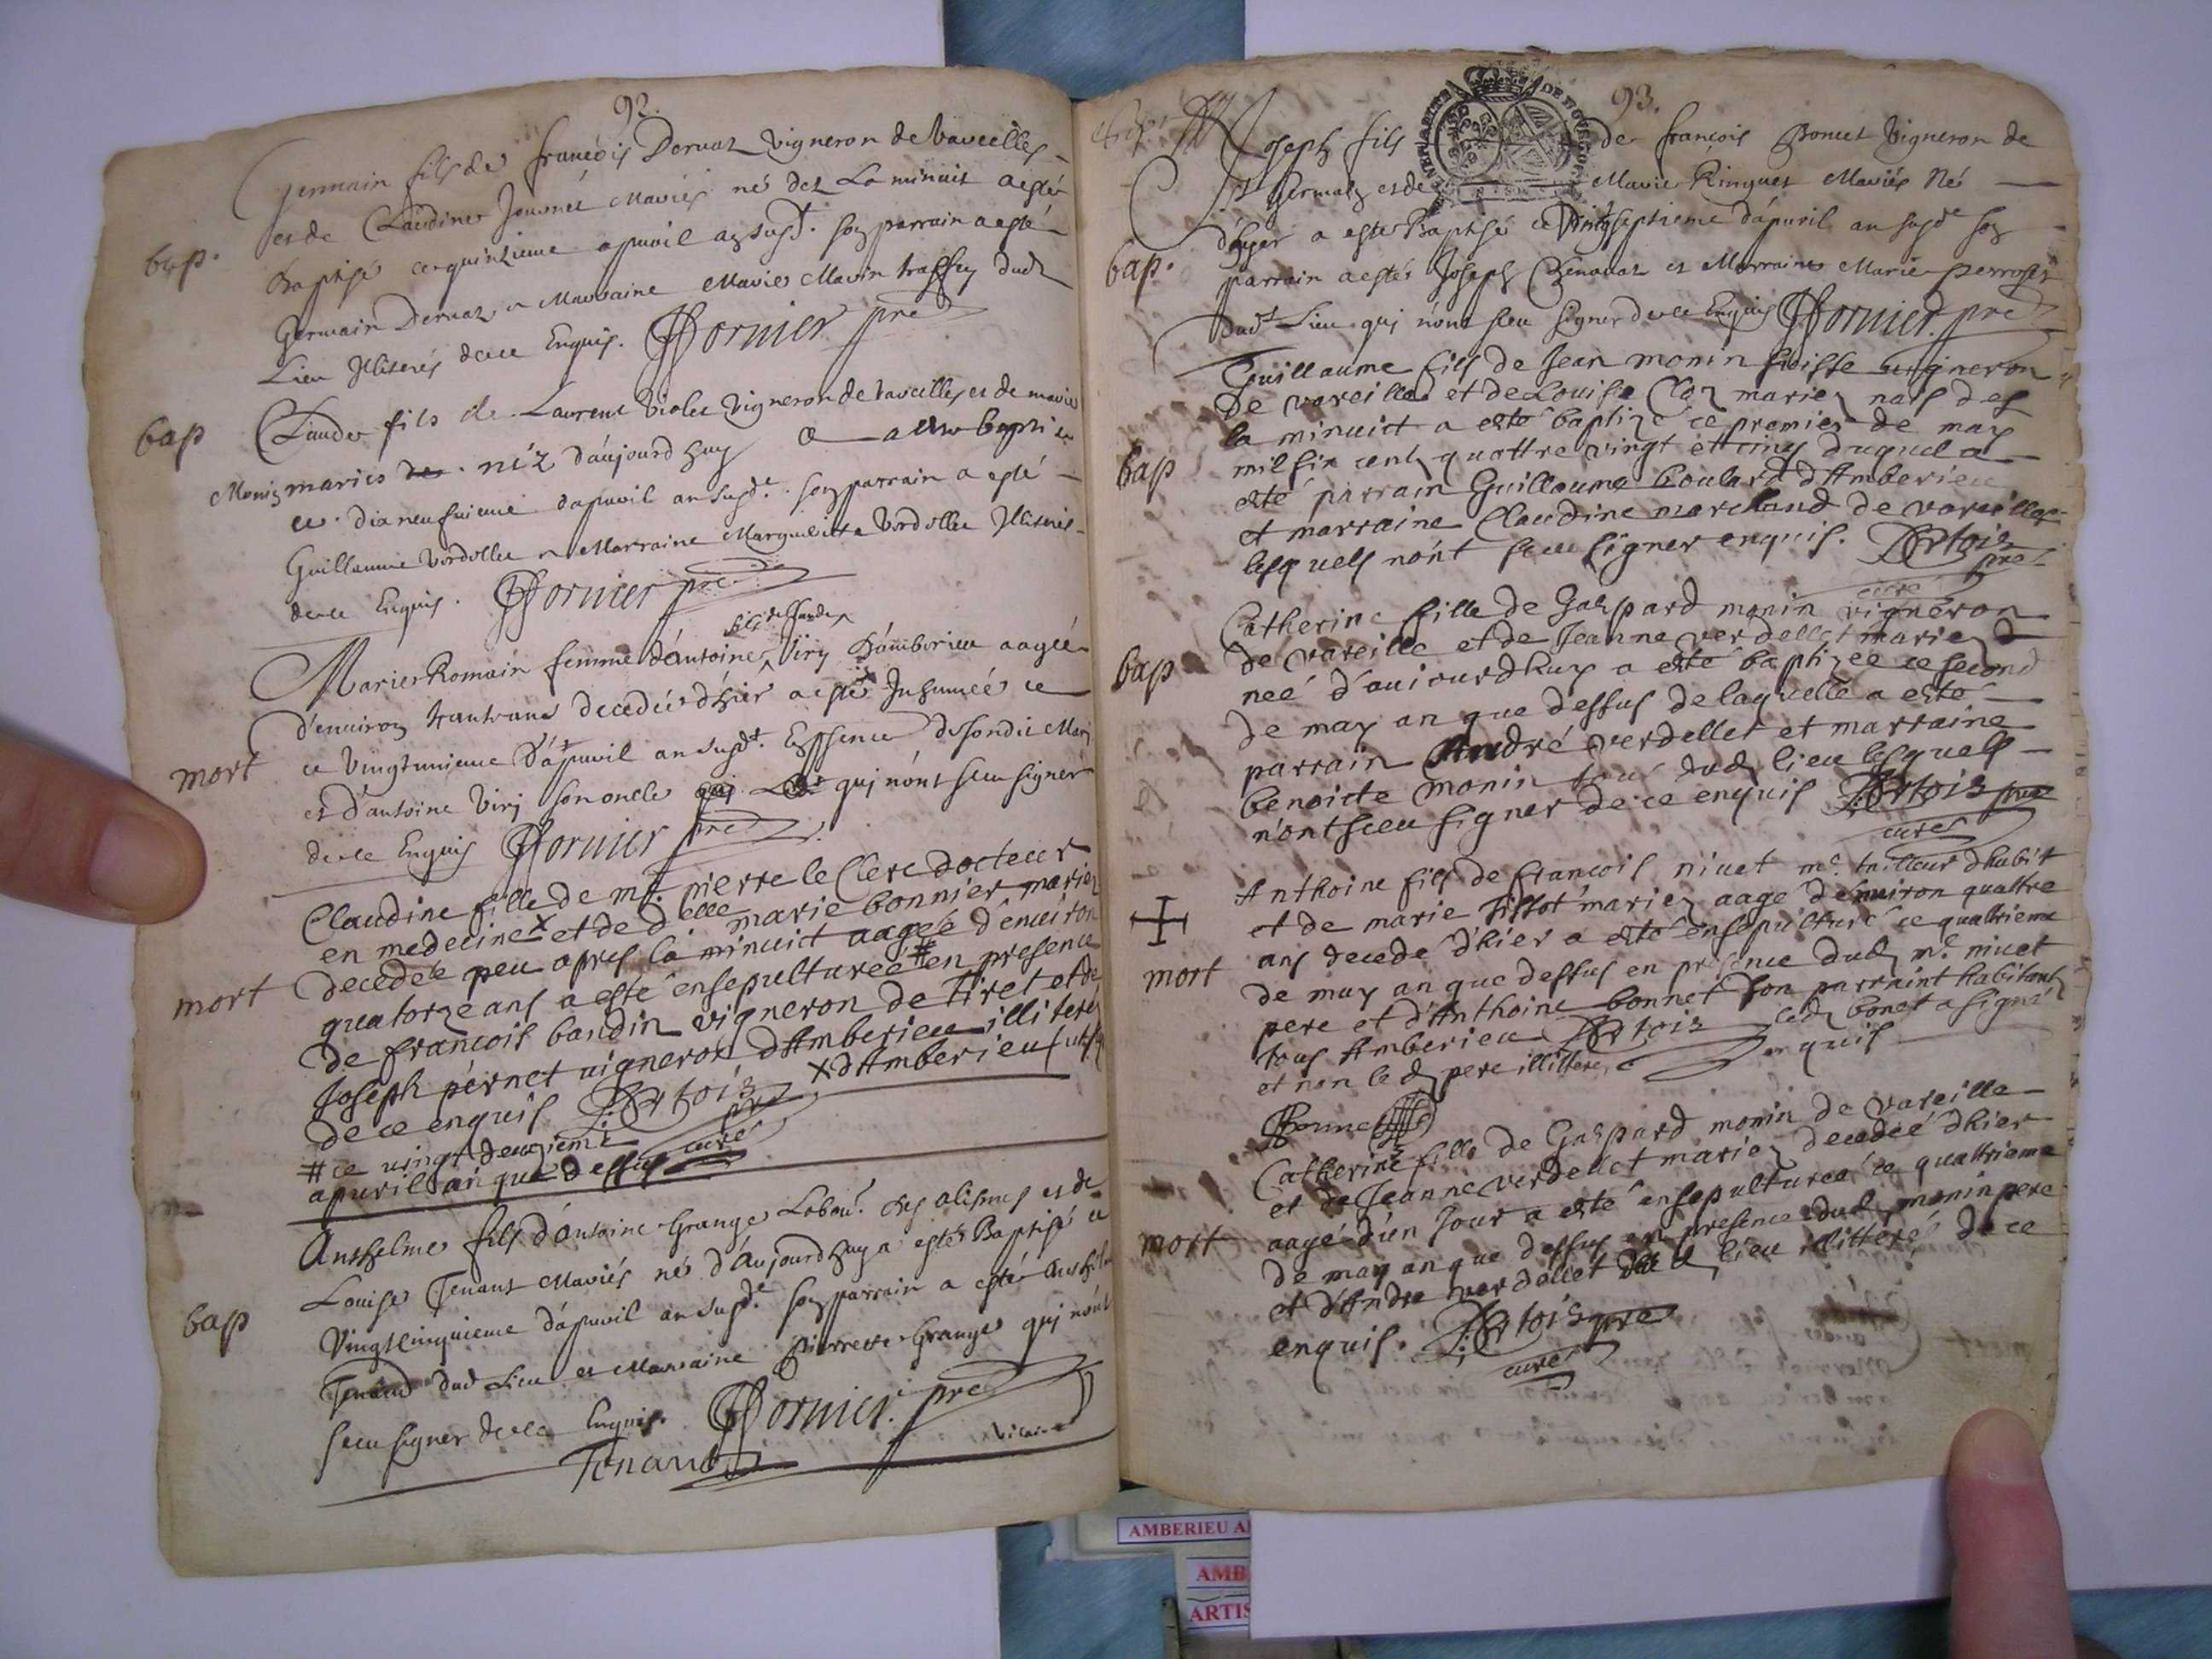 92.
Germain fils de françois Dervaz vigneron de Vareilles
et de Claudine Journet Mariés né des La minuit a esté
bap.
Baptisé ce quinzieme apuril an susd.t son parrain a esté
Germain Dervaz et Marraine Marie Marin dud.
Lieu Illiterés de ce Enquis. Fornier pre
bap
Claude fils de Laurent Violet Vigneron de Vareilles et de marie
Monin mariés néz d'aujourd huy a esté baptisé
ce dixneufuieme d'apuril an susd.e son parrain a esté
Guillaume Verdellet et Marraine Marguerite Verdellet Illiterés
de ce Enquis. Fornier pre
fils de Claude
Marie Romain femme d'antoine Viry d'amberieu aagée
d'enuiron trante ans decedée d'hier a esté Inhumée ce
mort
ce vingtunieme d'apuril an susd.t En presence dudit Mary
et d'antoine Viry son oncle qui n'ont sceu signer
de ce Enquis Fornier pre
Claudine fille de m.re pierre le Clerc docteur
en medecine x et de d.elle marie bonnier mariez
decedée peu apres la minuict aagée d'enuiron
mort
quatorze ans a esté ensepulturée # en presence
de francois baudin vigneron de tiret et de
Joseph pernet uigneron d'Amberieu illiterez
de ce enquis Artois pre x d'Amberieu
# ce uingt deuxieme
apuril an que dessus curé
Anthelme fils d'antoine Grange Labou.r des alismes et de
Louise Tenant Mariés né d'aujourd huy a esté Baptisé ce
bap
Vingtcinquieme d'apuril an susd.e son parrain a esté Anthelme
Tenand dud Lieu et Marraine pierrette Grange qui n'ont
sceu signer de ce Enquis. Fornier pre
Tenand vicaire
93.
Joseph fils de francois Poncet Vigneron de
St Germain et de Marie Ringuet Mariés Né
d'hyer a esté Baptisé ce Vingtseptieme d'apuril an susd.e son
bap.
parrain a esté Joseph Chenavaz et Marraine Marie perrosset
dud.t Lieu qui n'ont sceu signer de ce Enquis Fornier pre
Guillaume fils de Jean monin vigneron
de vareilles et de Louise Cloz mariez nais des
la minuict a esté baptizé ce premier de may
bap
mil six cents quattre vingt et cinq duquel a
esté parrain Guillaume boulard d'Amberieu
et marraine Claudine marchand de vareilles
lesquels n'ont sceu signer enquis. Artois pre
curé
Catherine fille de Gaspard monin vigneron
de vareille et de Jeanne verdellet mariez
bap
neé d'auiourdhuy a esté baptizee ce second
de may an que dessus de laquelle a esté
parrain André verdellet et marraine
benoicte monin tous dud. lieu lesquels
n'ont sceu signer de ce enquis Artois pre
curé
Anthoine fils de francois niuet m.e tailleur d'habit
et de marie tissot mariez aagé d'enuiron quattre
ans decedé d'hier a esté ensepulturé ce quattrieme
mort
de may an que dessus en presence dud. m.e niuet
pere et d'Anthoine bonnet son parraint habitants
tous Amberieu Artois led. bonet a signé
et non led. pere illittere enquis
Bonnet
Catherine fille de Gaspard monin de vareille
et de Jeanne verdellet mariez decedee d'hier
aagé d'un Jour a esté ensepulturee ce quattrieme
mort
de may an que dessus en presence dud. monin pere
et d'Andre verdellet dud. lieu illitteré de ce
enquis. Artois pre
curé
AMBERIEU
AMB
ARTIS